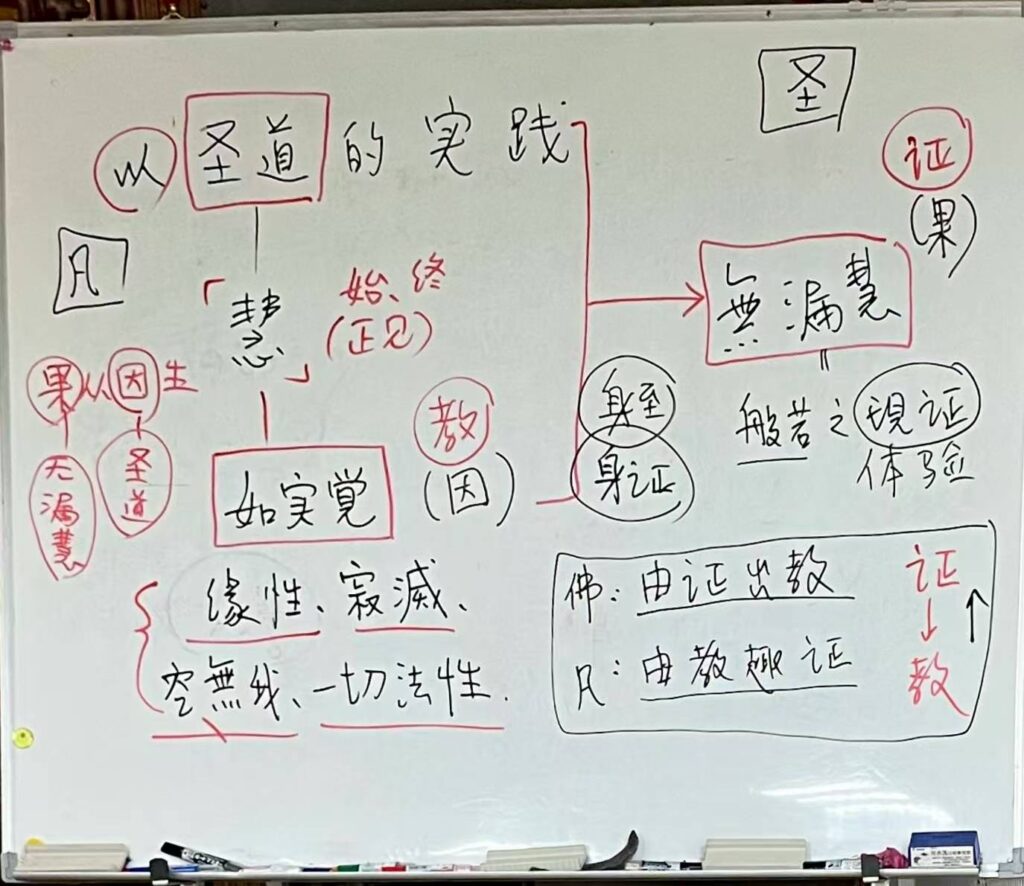 圣
以圣道的实践
证
(果)
凡
「慧」
始、终
(正见)
無漏慧
果从因生
无漏慧
圣道
教
(因)
身至
身证
般若之现证
体验
如实覚
缘性、寂滅、
空無我、一切法性.
佛:由证出教
凡:由教趣证
证
教